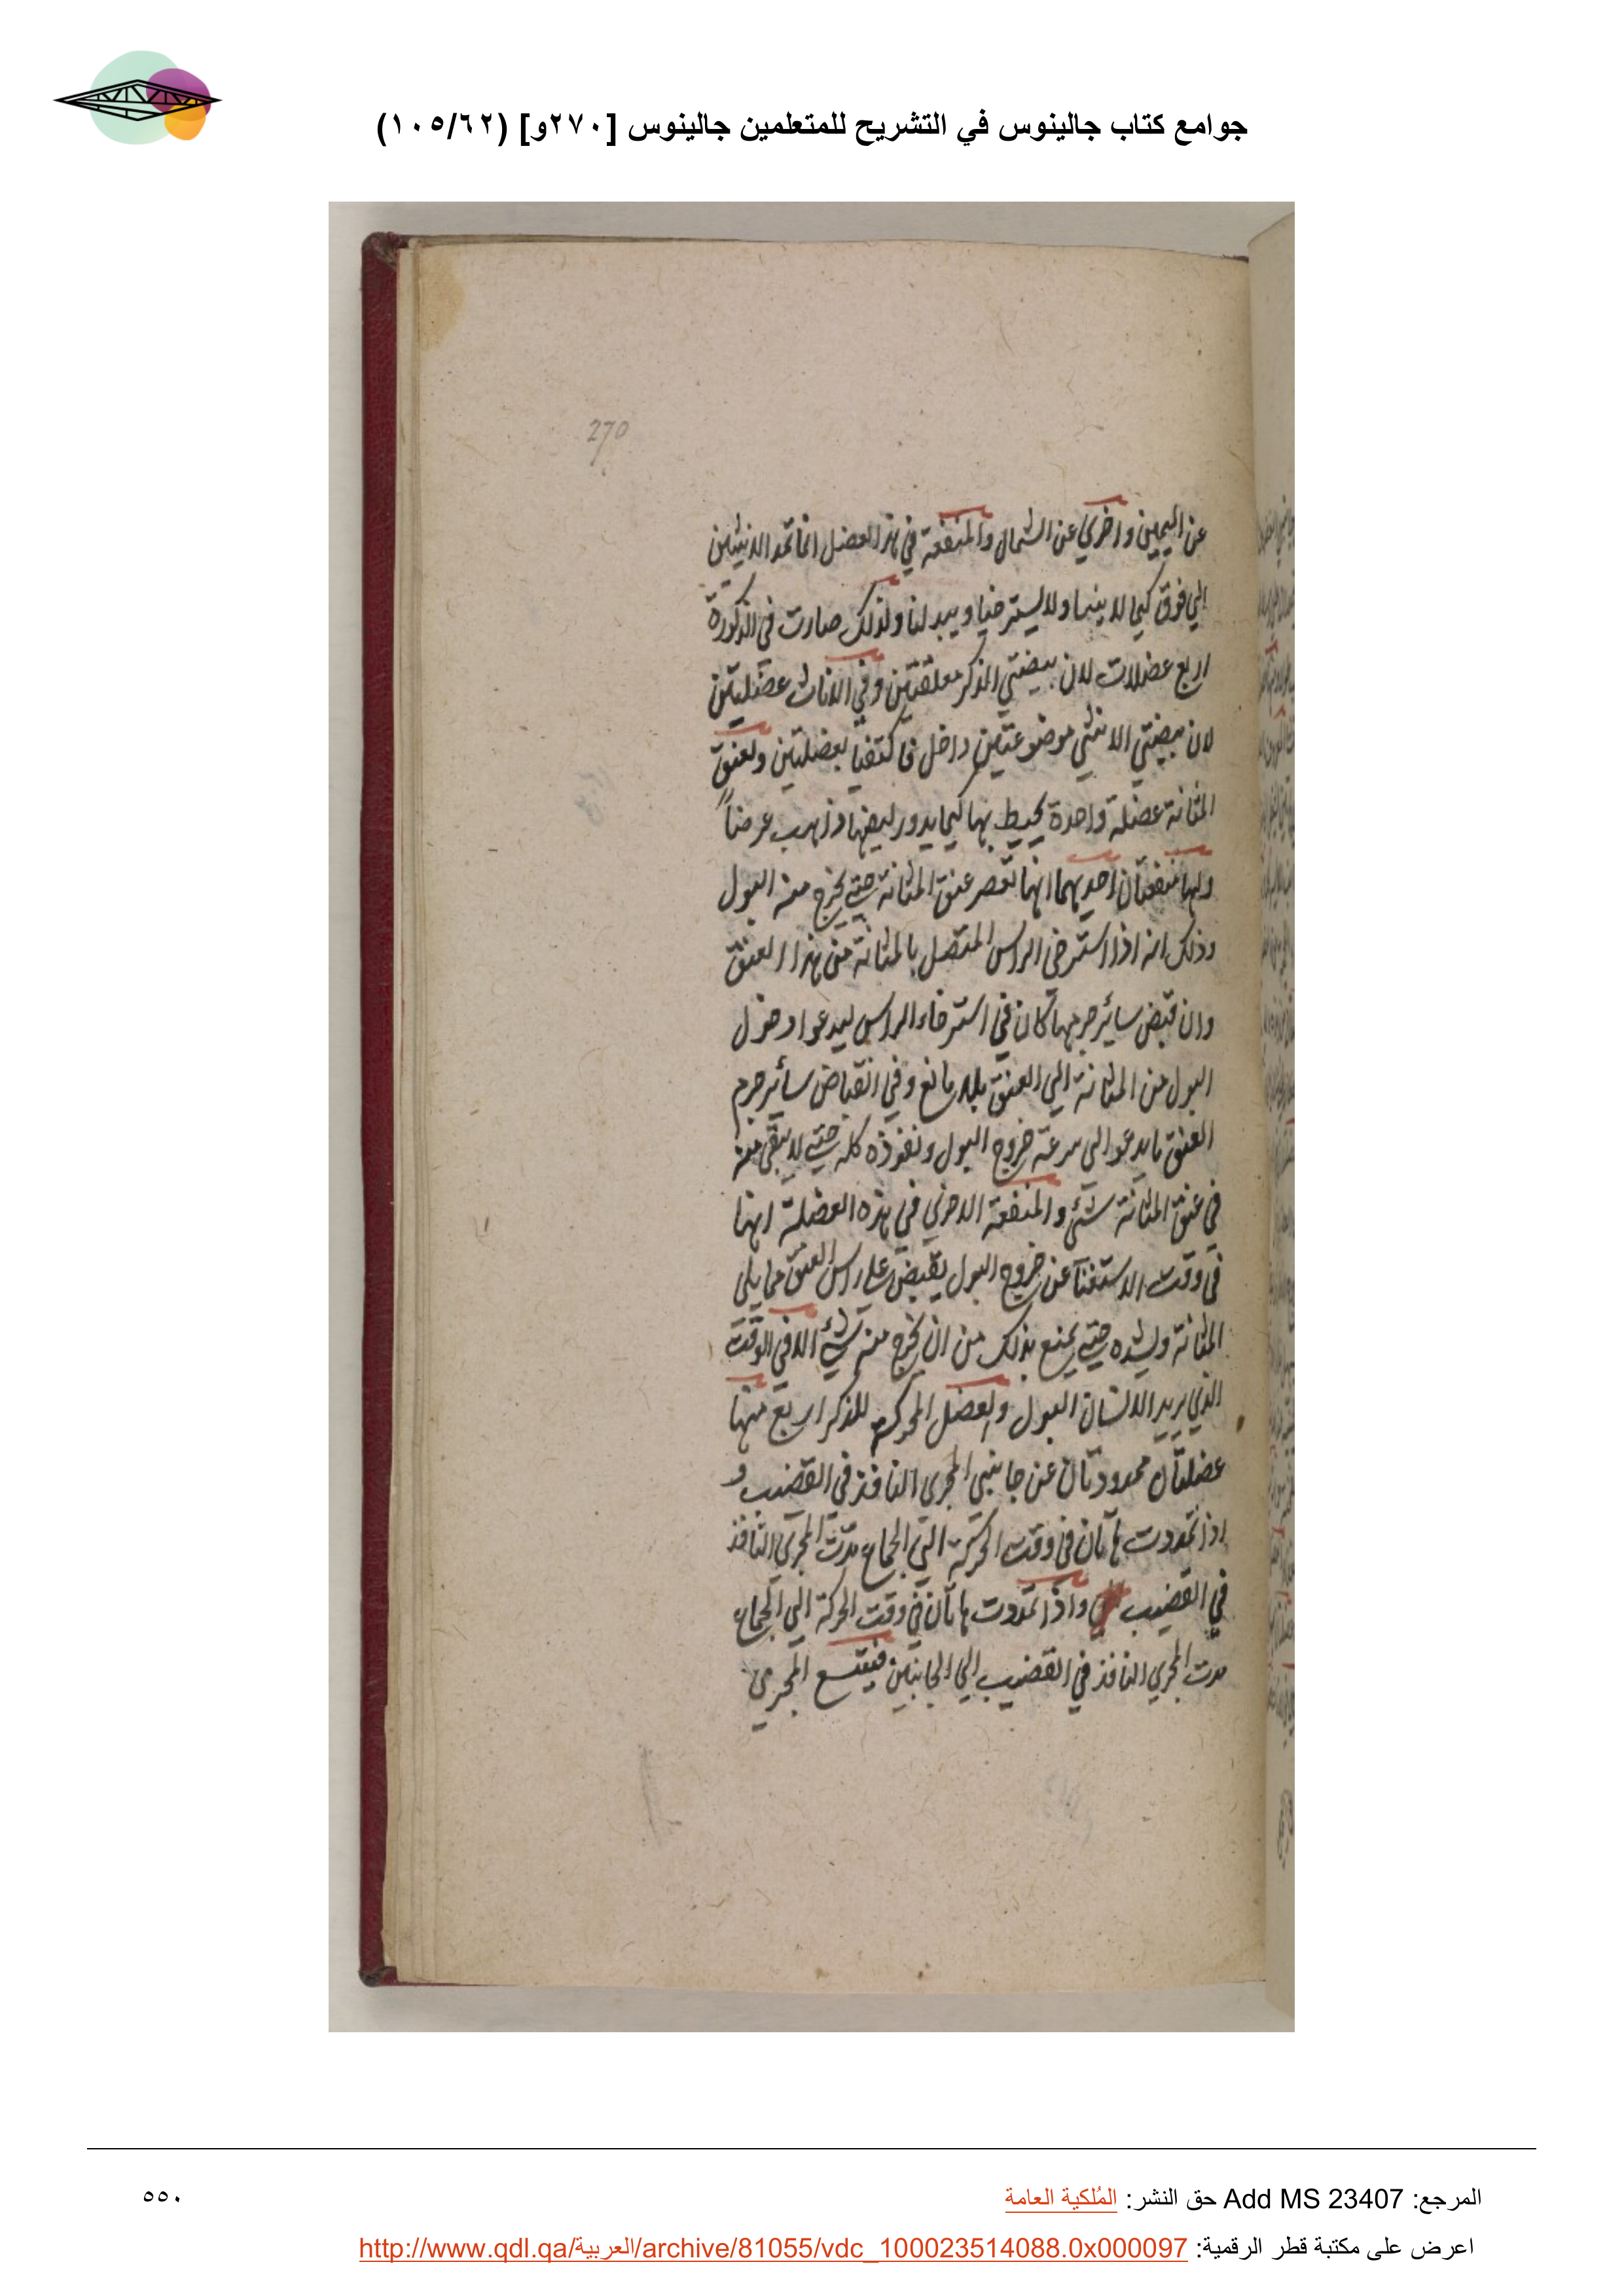 جوامع كتاب جالينوس في التشريح للمتعلمين جالينوس [٢٧٠و] (١٠٥/٦٢)
270
عن اليمين واخري عن الشمال والمنفعة في هذا العضل انها تمد الانثيين
الي فوق كيما لا ولا يسترخيا ولذلك صارت في الذكورة
اربع عضلات لان بيضتي الذكر معلقتين وفي الاناث عضلتين
لان بيضتي الانثي موضوعتين داخل فاكتفيا بعضلتين ولعنق
المثانة عضلة واحدة يحيط بها كيما يدور ليفها ذاهب عرضاً
ولها منفعتان احديهما انها تعصر عنق المثانة حتي يخرج منه البول
وذلك انه اذا استرخي الراس المتصل بالمثانة من هذا العنق
وان قبض سائر جرمها كان في استرخاء الراس ليدعوا دخول
البول من المثانة الي العنق بلا مانع وفي انقباض سائر جرم
العنق ما يدعو الي سرعة خروج البول ونفوذه كله حتي لا يبقي منه
في عنق المثانة شئ والمنفعة الاخري في هذه العضلة انها
في وقت الاستغنآ عن خروج البول يقبض علي راس العنق مما يلي
المثانة ويشده حتي يمنع بذلك من ان يخرج منه شئ الا في الوقت
الذي يريد الانسان البول والعضل المحركة للذكر اربع منها
عضلتان ممدودتان عن جانبي المجري النافذ في القضيب و
اذا تمددت هاتان في وقت الحركة الي الجماع مدت المجري النافذ
في القضيب واذا تمددت هاتان في وقت الحركة الي الجماع
مدت المجري النافذ في القضيب الي الجانبين فيتسع المجري
المرجع: Add MS 23407 حق النشر: المُلكية العامة
٥٥٠
اعرض على مكتبة قطر الرقمية: http://www.qdl.qa/العربية/archive/81055/vdc_100023514088.0x000097